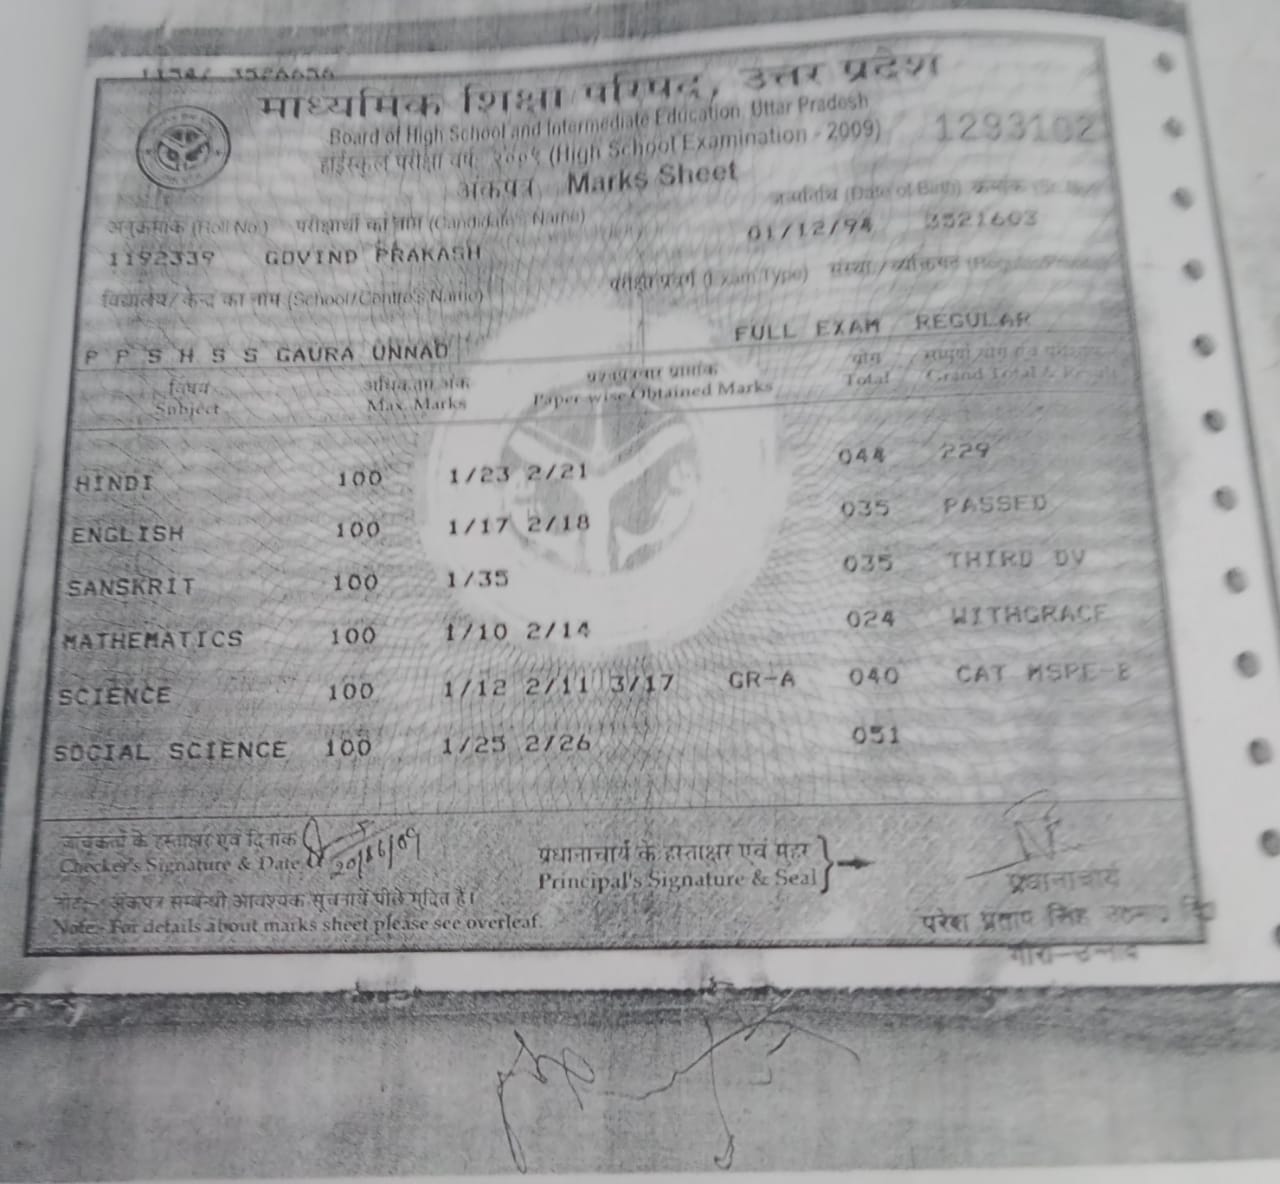 माध्यमिक शिक्षा परिषद, उत्तर प्रदेश
Board of High School and Intermediate Education, Uttar Pradesh
हाईस्कूल परीक्षा वर्ष २००९ (High School Examination - 2009) 1293102
अंकपत्र Marks Sheet
अनुक्रमांक (Roll No.) परीक्षार्थी का नाम (Candidate's Name) (Date of Birth) क्रमांक
1192339 GOVIND PRAKASH 01/12/94 3521603
विद्यालय/ केन्द्र का नाम (School/Centre's Name) (Exam Type)
P P S H S S GAURA UNNAO FULL EXAM REGULAR
विषय अधिकतम अंक योग
Subject Max. Marks Paper-wise Obtained Marks Total Grand Total & Result
HINDI 100 1/23 2/21 044 229
ENGLISH 100 1/17 2/18 035 PASSED
SANSKRIT 100 1/35 035 THIRD DV
MATHEMATICS 100 1/10 2/14 024 WITHGRACE
SCIENCE 100 1/12 2/11 3/17 GR-A 040 CAT MSPE-B
SOCIAL SCIENCE 100 1/25 2/26 051
जांचकर्ता के हस्ताक्षर एवं दिनांक
Checker's Signature & Date 20/6/09
प्रधानाचार्य के हस्ताक्षर एवं मुहर
Principal's Signature & Seal
प्रधानाचार्य
परेश प्रताप सिंह
नोट:- अंकपत्र सम्बन्धी आवश्यक सूचनायें पीछे मुद्रित हैं।
Note:- For details about marks sheet please see overleaf.